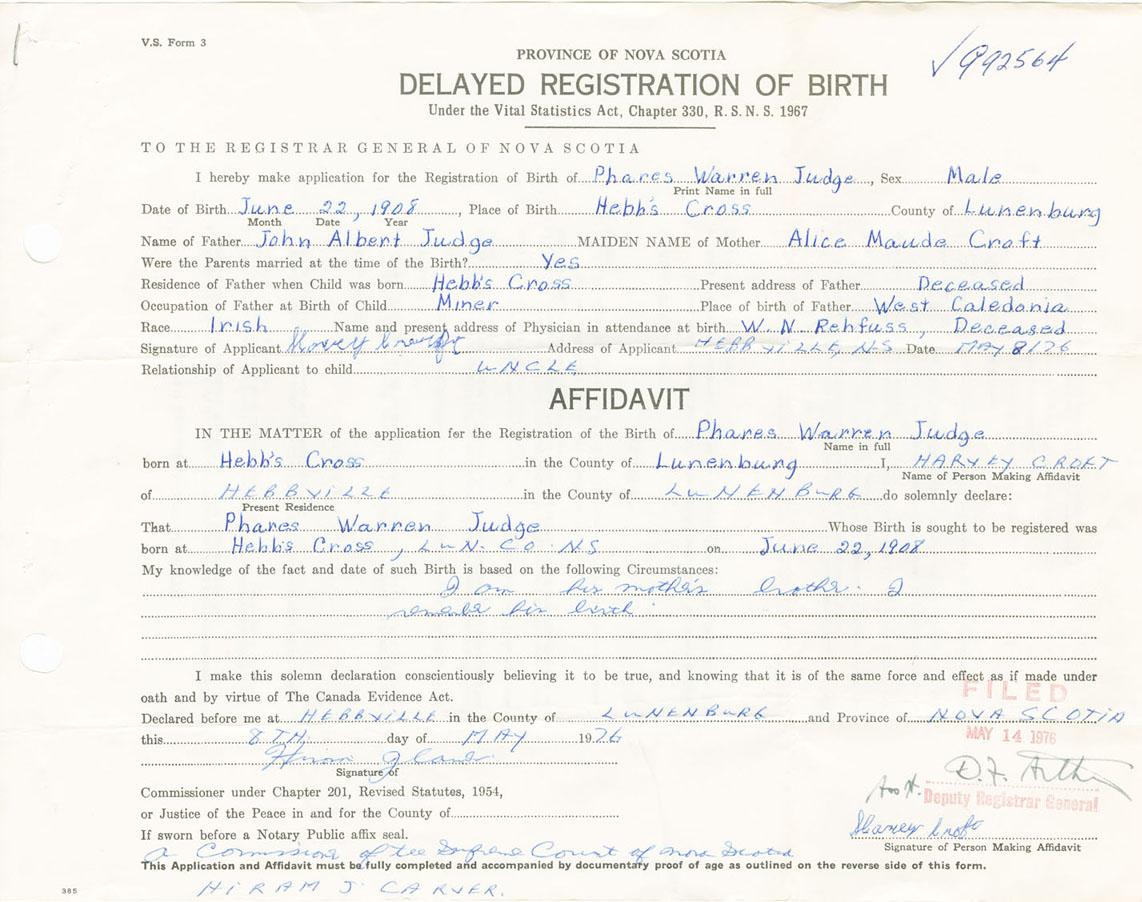 V.S. Form 3
PROVINCE OF NOVA SCOTIA
√992564
DELAYED REGISTRATION OF BIRTH
Under the Vital Statistics Act, Chapter 330, R.S.N.S. 1967
TO THE REGISTRAR GENERAL OF NOVA SCOTIA
I hereby make application for the Registration of Birth of Phares Warren Judge, Sex Male
Print Name in full
Date of Birth June 22, 1908, Place of Birth Hebb's Cross County of Lunenburg
Month Date Year
Name of Father John Albert Judge MAIDEN NAME of Mother Alice Maude Croft
Were the Parents married at the time of the Birth? Yes
Residence of Father when Child was born Hebb's Cross Present address of Father Deceased
Occupation of Father at Birth of Child Miner Place of birth of Father West Caledonia
Race Irish Name and present address of Physician in attendance at birth W. N. Rehfuss, Deceased
Signature of Applicant Harvey Croft Address of Applicant HEBBVILLE, N.S. Date MAY 8/76
Relationship of Applicant to child UNCLE
AFFIDAVIT
IN THE MATTER of the application for the Registration of the Birth of Phares Warren Judge
Name in full
born at Hebb's Cross in the County of Lunenburg I, HARVEY CROFT
Name of Person Making Affidavit
of HEBBVILLE in the County of LUNENBURG do solemnly declare:
Present Residence
That Phares Warren Judge Whose Birth is sought to be registered was
born at Hebb's Cross, LUN. CO. N.S on June 22, 1908
My knowledge of the fact and date of such Birth is based on the following Circumstances:
I am his mother's brother. I
his birth.
I make this solemn declaration conscientiously believing it to be true, and knowing that it is of the same force and effect as if made under
oath and by virtue of The Canada Evidence Act.
FILED
Declared before me at HEBBVILLE in the County of LUNENBURG and Province of NOVA SCOTIA
this 8TH. day of MAY 1976
MAY 14 1976
Hiram J Carver
Signature of
D.F.
Commissioner under Chapter 201, Revised Statutes, 1954,
Deputy Registrar General
or Justice of the Peace in and for the County of
If sworn before a Notary Public affix seal.
Harvey Croft
Signature of Person Making Affidavit
A Commissioner of the Supreme Court of Nova Scotia
This Application and Affidavit must be fully completed and accompanied by documentary proof of age as outlined on the reverse side of this form.
385
HIRAM J CARVER.